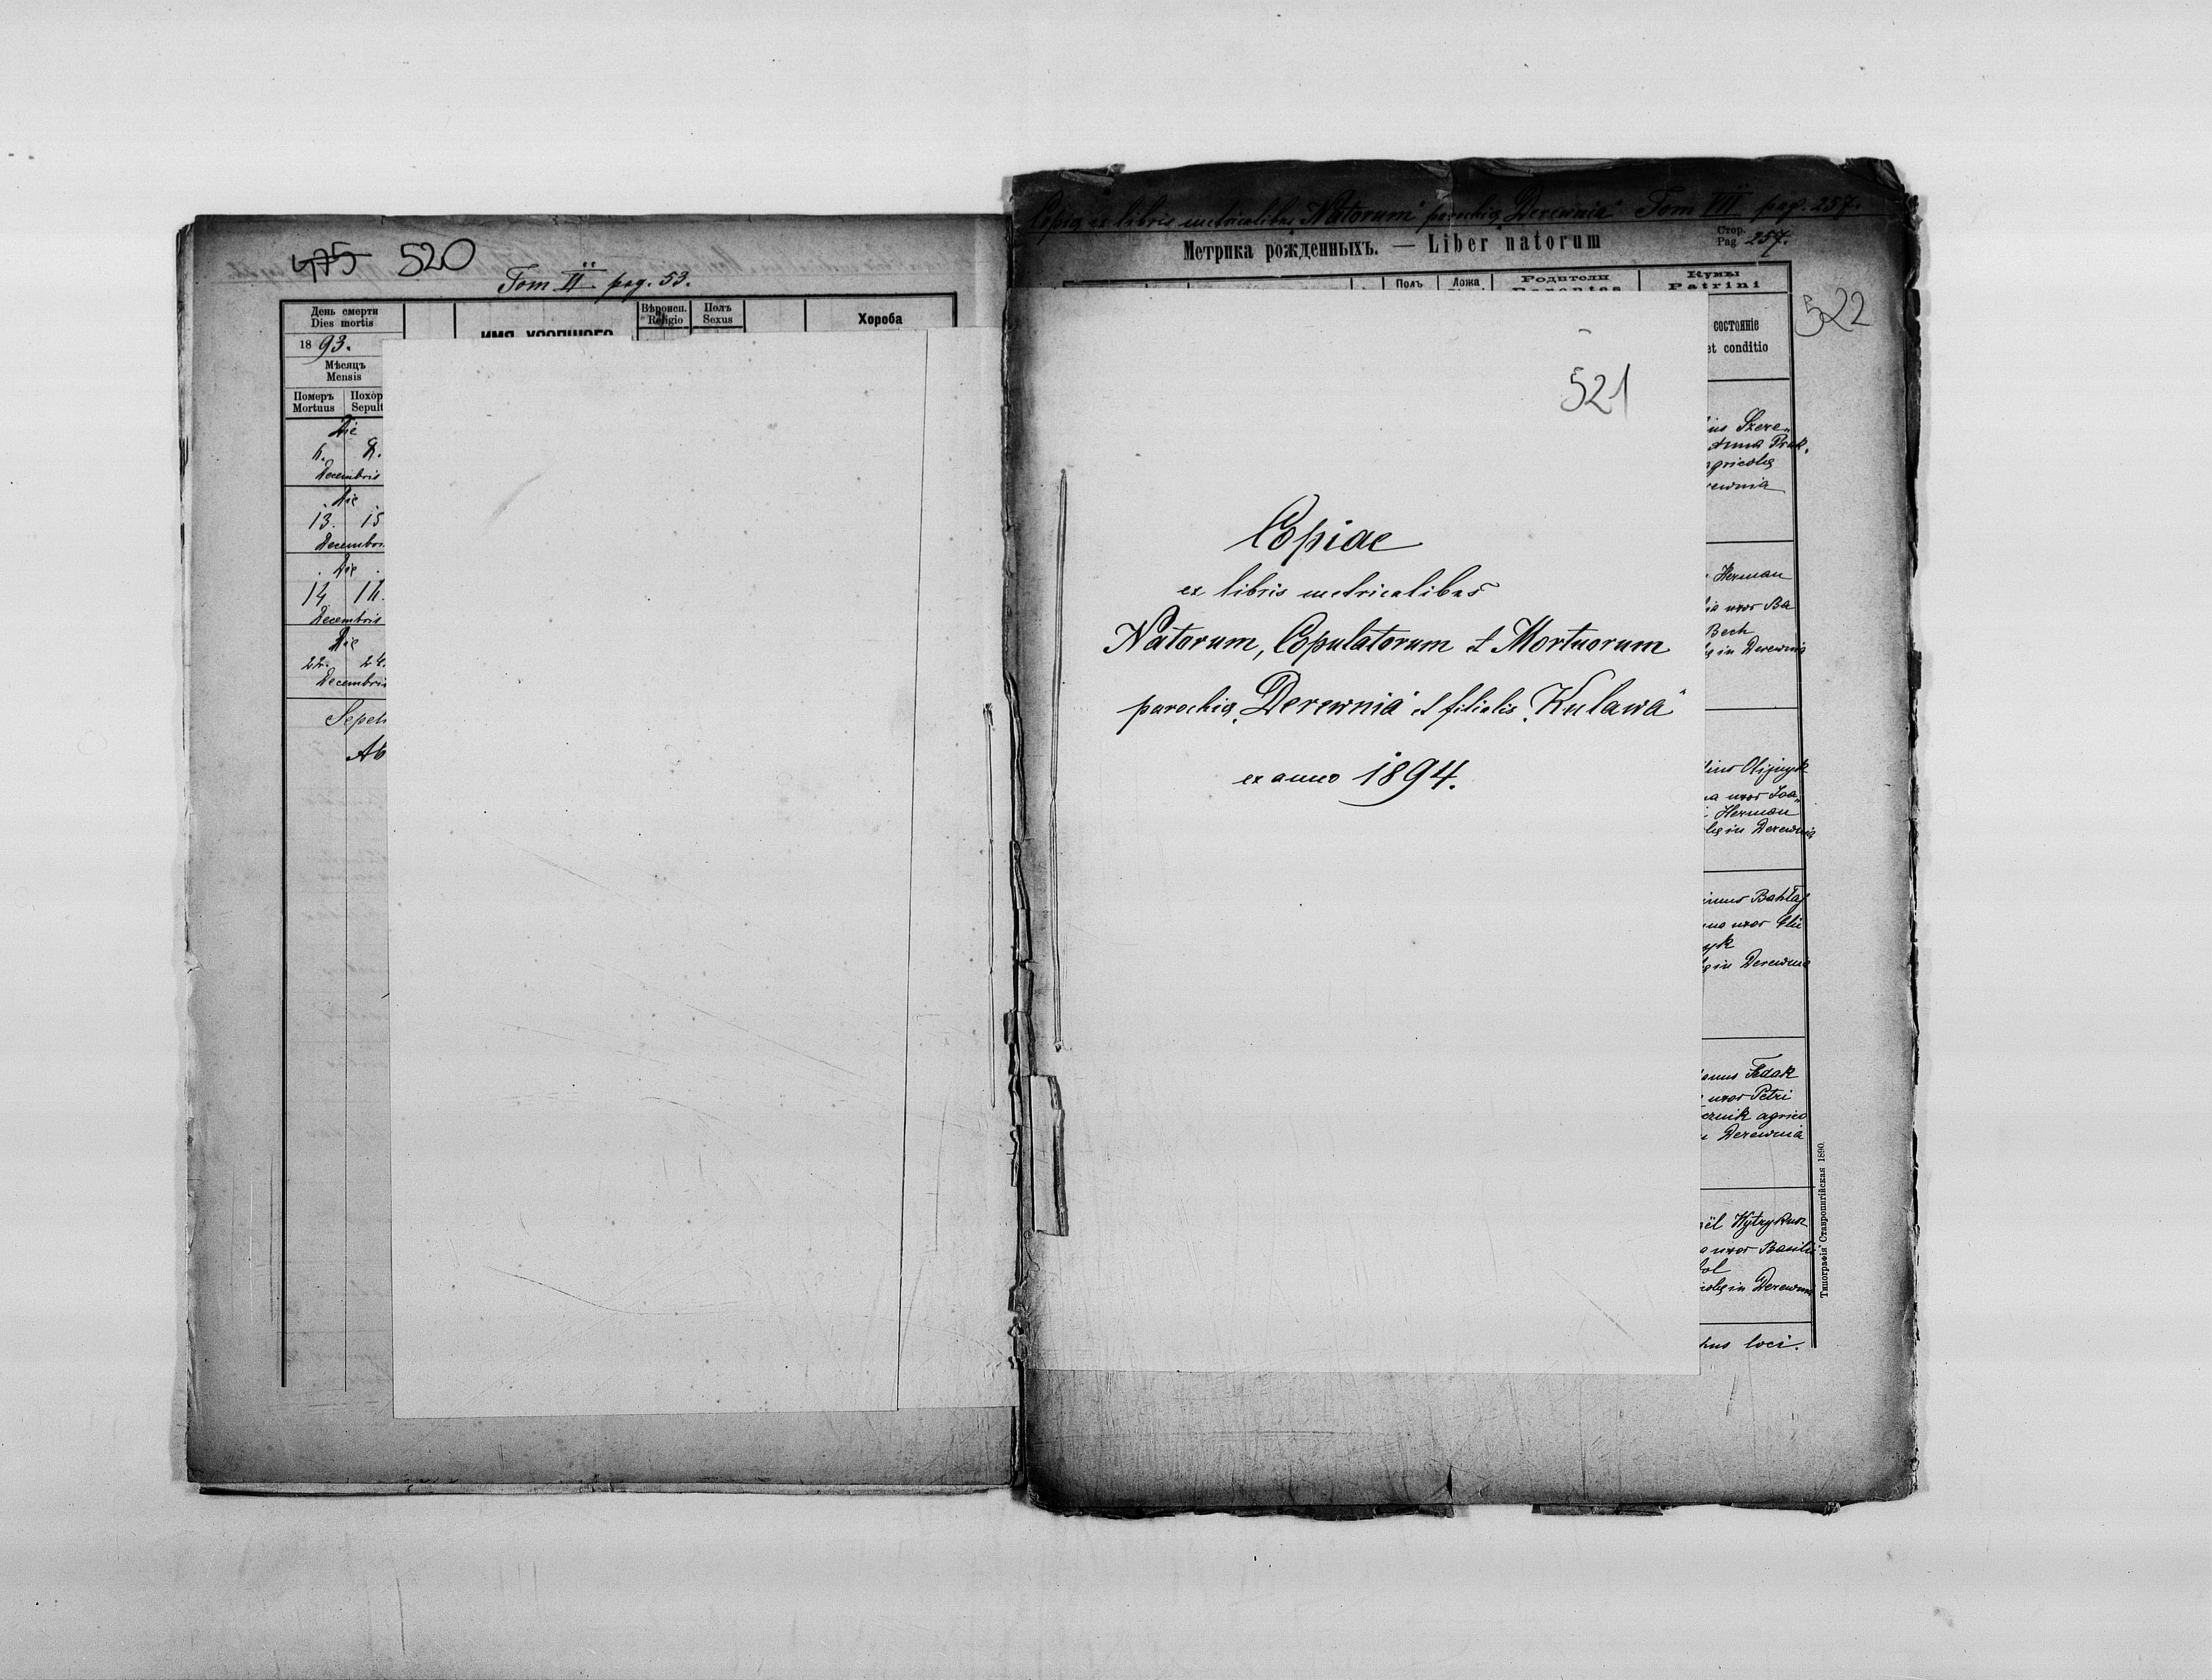 475 520
Tom II pag. 53.
День смерти
Dies mortis
Вѣроисп.
Religio
Полъ
Sexus
Хороба
ИМЯ УСОПШОГО
1893.
Мѣсяцъ
Mensis
Померъ Похор
Mortuus Sepult
Die
6. 8.
Decembris
Die
13. 15
Decembri
Die
14 16.
Decembris
Die
22. 24.
Decembris
Sepeli
Ab
Copia ex libris metricalibus "Natorum" parochiæ "Derewnia" Tom VII pag. 257.
Метрика рожденныхъ. — Liber natorum
Стор.
Pag 257.
Полъ Ложа Родители Кумы
Parentes Patrini
состояніе
et conditio
522
521
Copiae
ex libris metricalibus
Natorum, Copulatorum et Mortuorum
parochiæ "Derewnia" et filialis "Kulawa"
ex anno 1894.
us Szere„
Anna Pruk.
agricolæ
rewnia
Herman
ia uxor Ba
Bech
læ in Derewnia
Olijnyk
na uxor Joa„
Herman
læ in Derewnia
imus Bahłaj
na uxor Eli
yk
æ in Derewnia
anus Fedak
uxor Petri
cznik agrico
Derewnia
ël Wytrykusz
a uxor Basilii
ol
colæ in Derewni
hus loci.
Типографія Ставропигійская 1890.